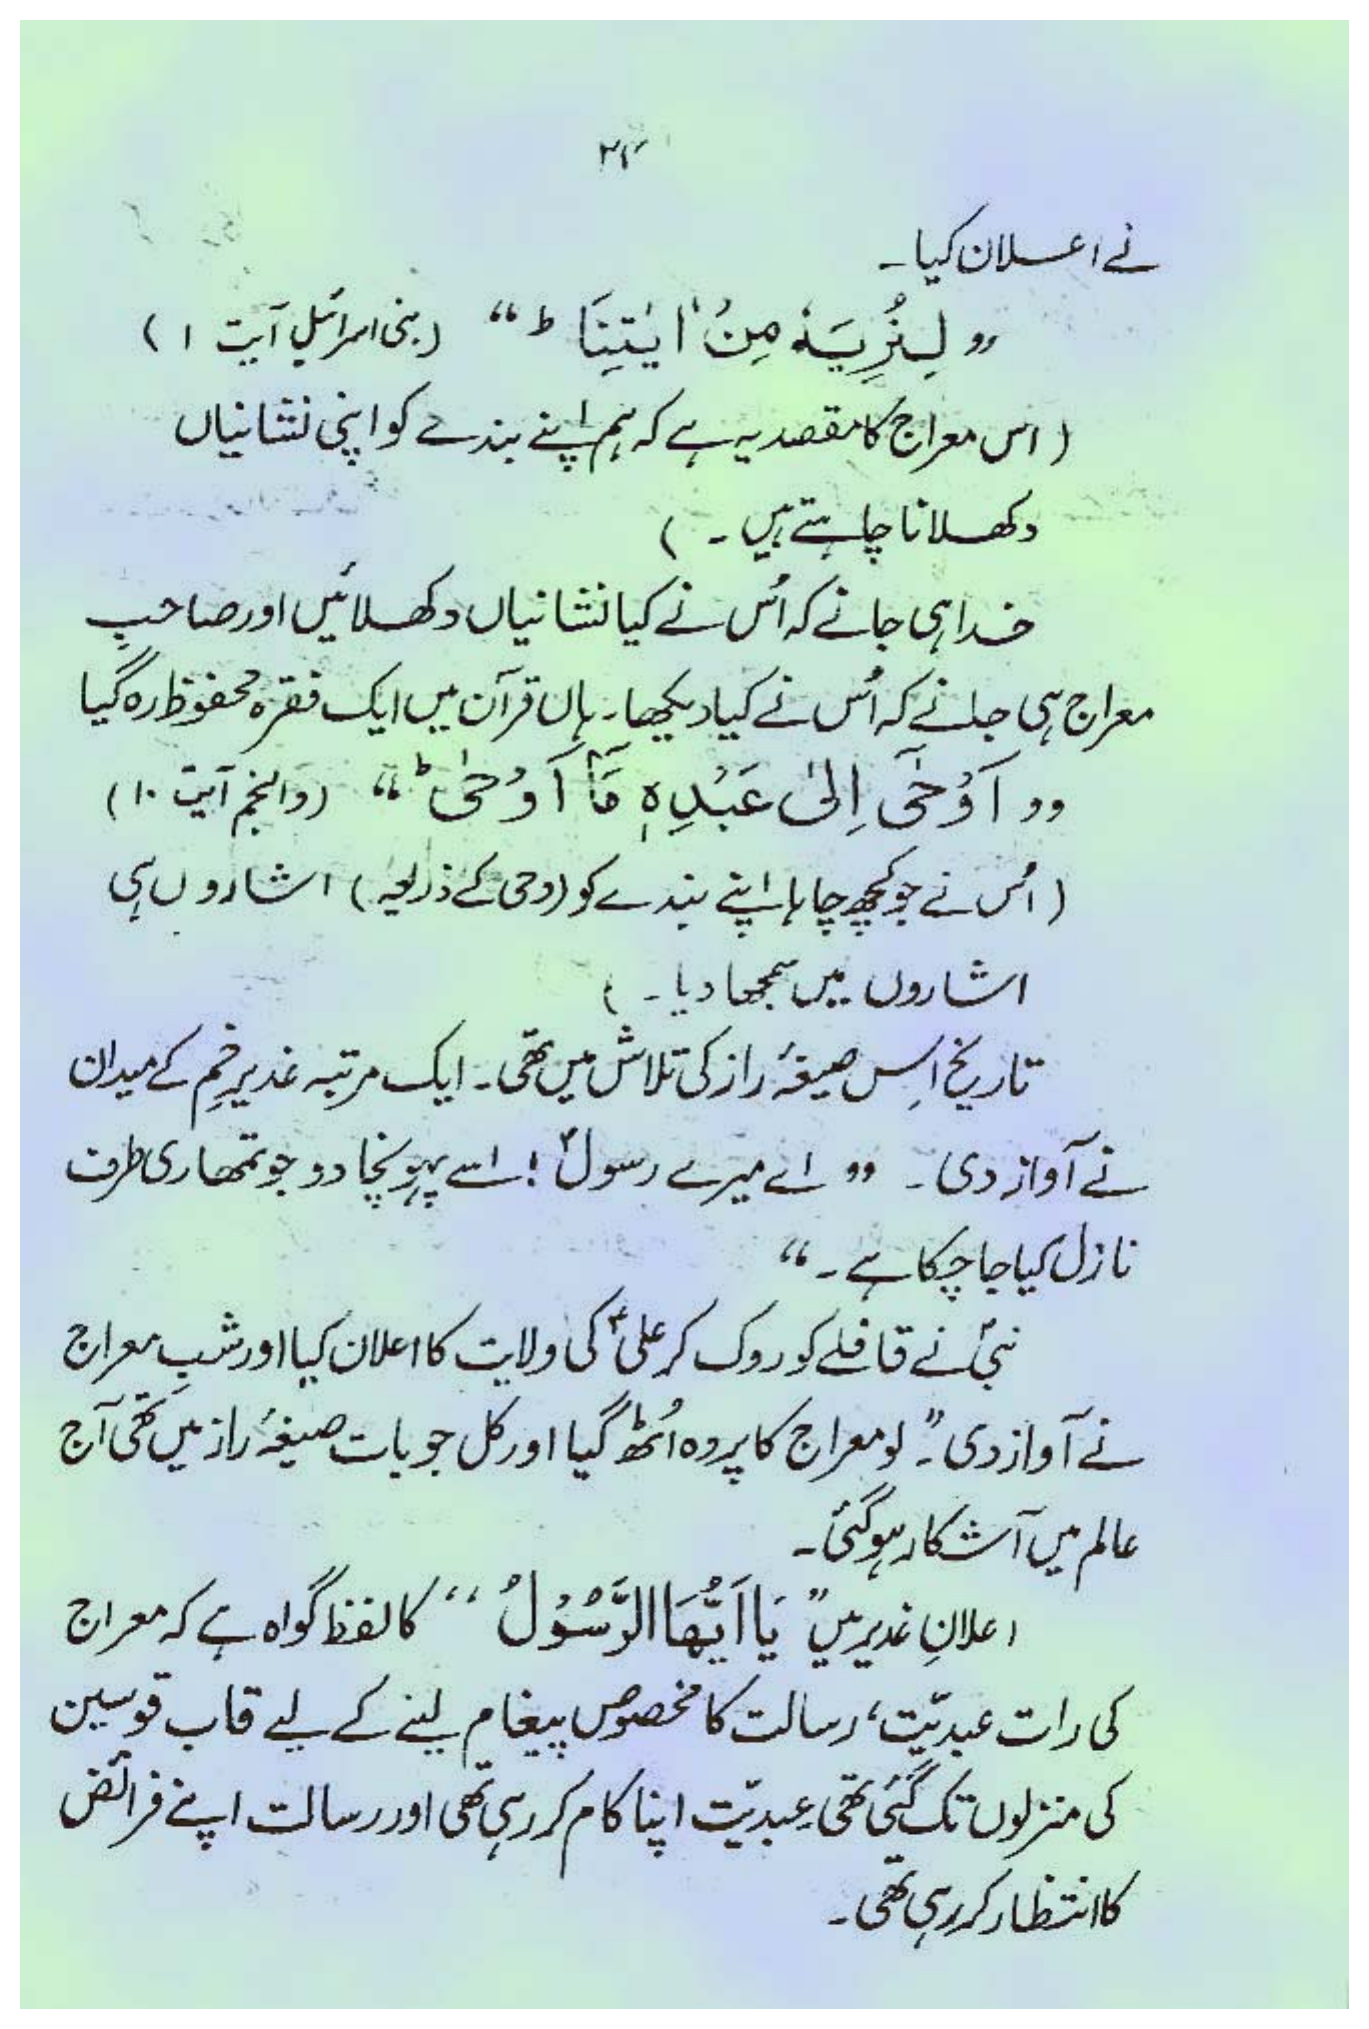 نے اعلان کیا۔
”لِنُرِیَہٗ مِنْ اٰیٰتِنَا ط“ (بنی اسرائیل آیت ۱)
(اس معراج کا مقصد یہ ہے کہ ہم اپنے بندے کو اپنی نشانیاں
دکھلانا چاہتے ہیں۔)
خدا ہی جانے کہ اُس نے کیا نشانیاں دکھلائیں اور صاحبِ
معراج ہی جانے کہ اُس نے کیا دیکھا۔ ہاں قرآن میں ایک فقرہ محفوظ رہ گیا
”اَوْحٰٓی اِلیٰ عَبْدِہٖ مَآ اَوْحٰی ط“ (والنجم آیت ۱۰)
(اُس نے جو کچھ چاہا اپنے بندے کو (وحی کے ذریعہ) اشاروں ہی
اشاروں میں سمجھا دیا۔)
تاریخ اِس صیغۂ راز کی تلاش میں تھی۔ ایک مرتبہ غدیرِ خم کے میدان
نے آواز دی۔ ”اے میرے رسولؐ! اسے پہونچا دو جو تمھاری طرف
نازل کیا جا چکا ہے۔“
نبیؐ نے قافلے کو روک کر علیؑ کی ولایت کا اعلان کیا اور شبِ معراج
نے آواز دی۔” لو معراج کا پردہ اُٹھ گیا اور کل جو بات صیغۂ راز میں تھی آج
عالم میں آشکار ہو گئی۔
اعلانِ غدیر میں ”یَا اَیُّھَا الرَّسُوْلُ“ کا لفظ گواہ ہے کہ معراج
کی رات عبدیّت، رسالت کا مخصوص پیغام لینے کے لیے قاب قوسین
کی منزلوں تک گئی تھی عبدیّت اپنا کام کر رہی تھی اور رسالت اپنے فرائض
کا انتظار کر رہی تھی۔